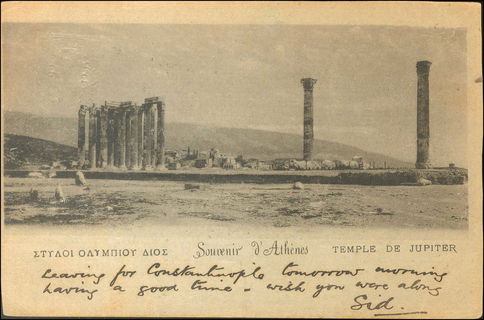 ΣΤΥΛΟΙ ΟΛΥΜΠΙΟΥ ΔΙΟΣ Souvenir d'Athènes TEMPLE DE JUPITER
Leaving for Constantinople tomorrow morning
having a good time - wish you were along
Sid.